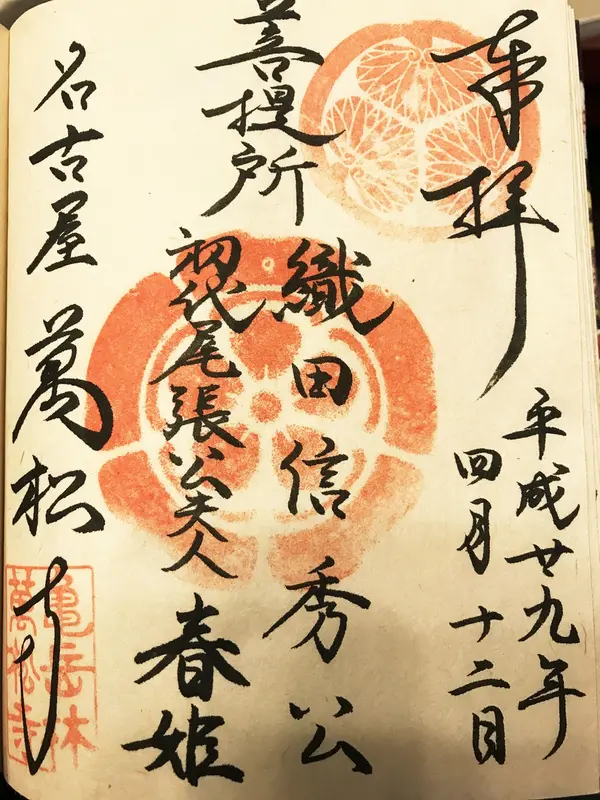 奉拝
平成廿九年
四月十二日
菩提所
織田信秀公
初代尾張公夫人
春姫
名古屋
萬松寺
亀岳林
萬松寺